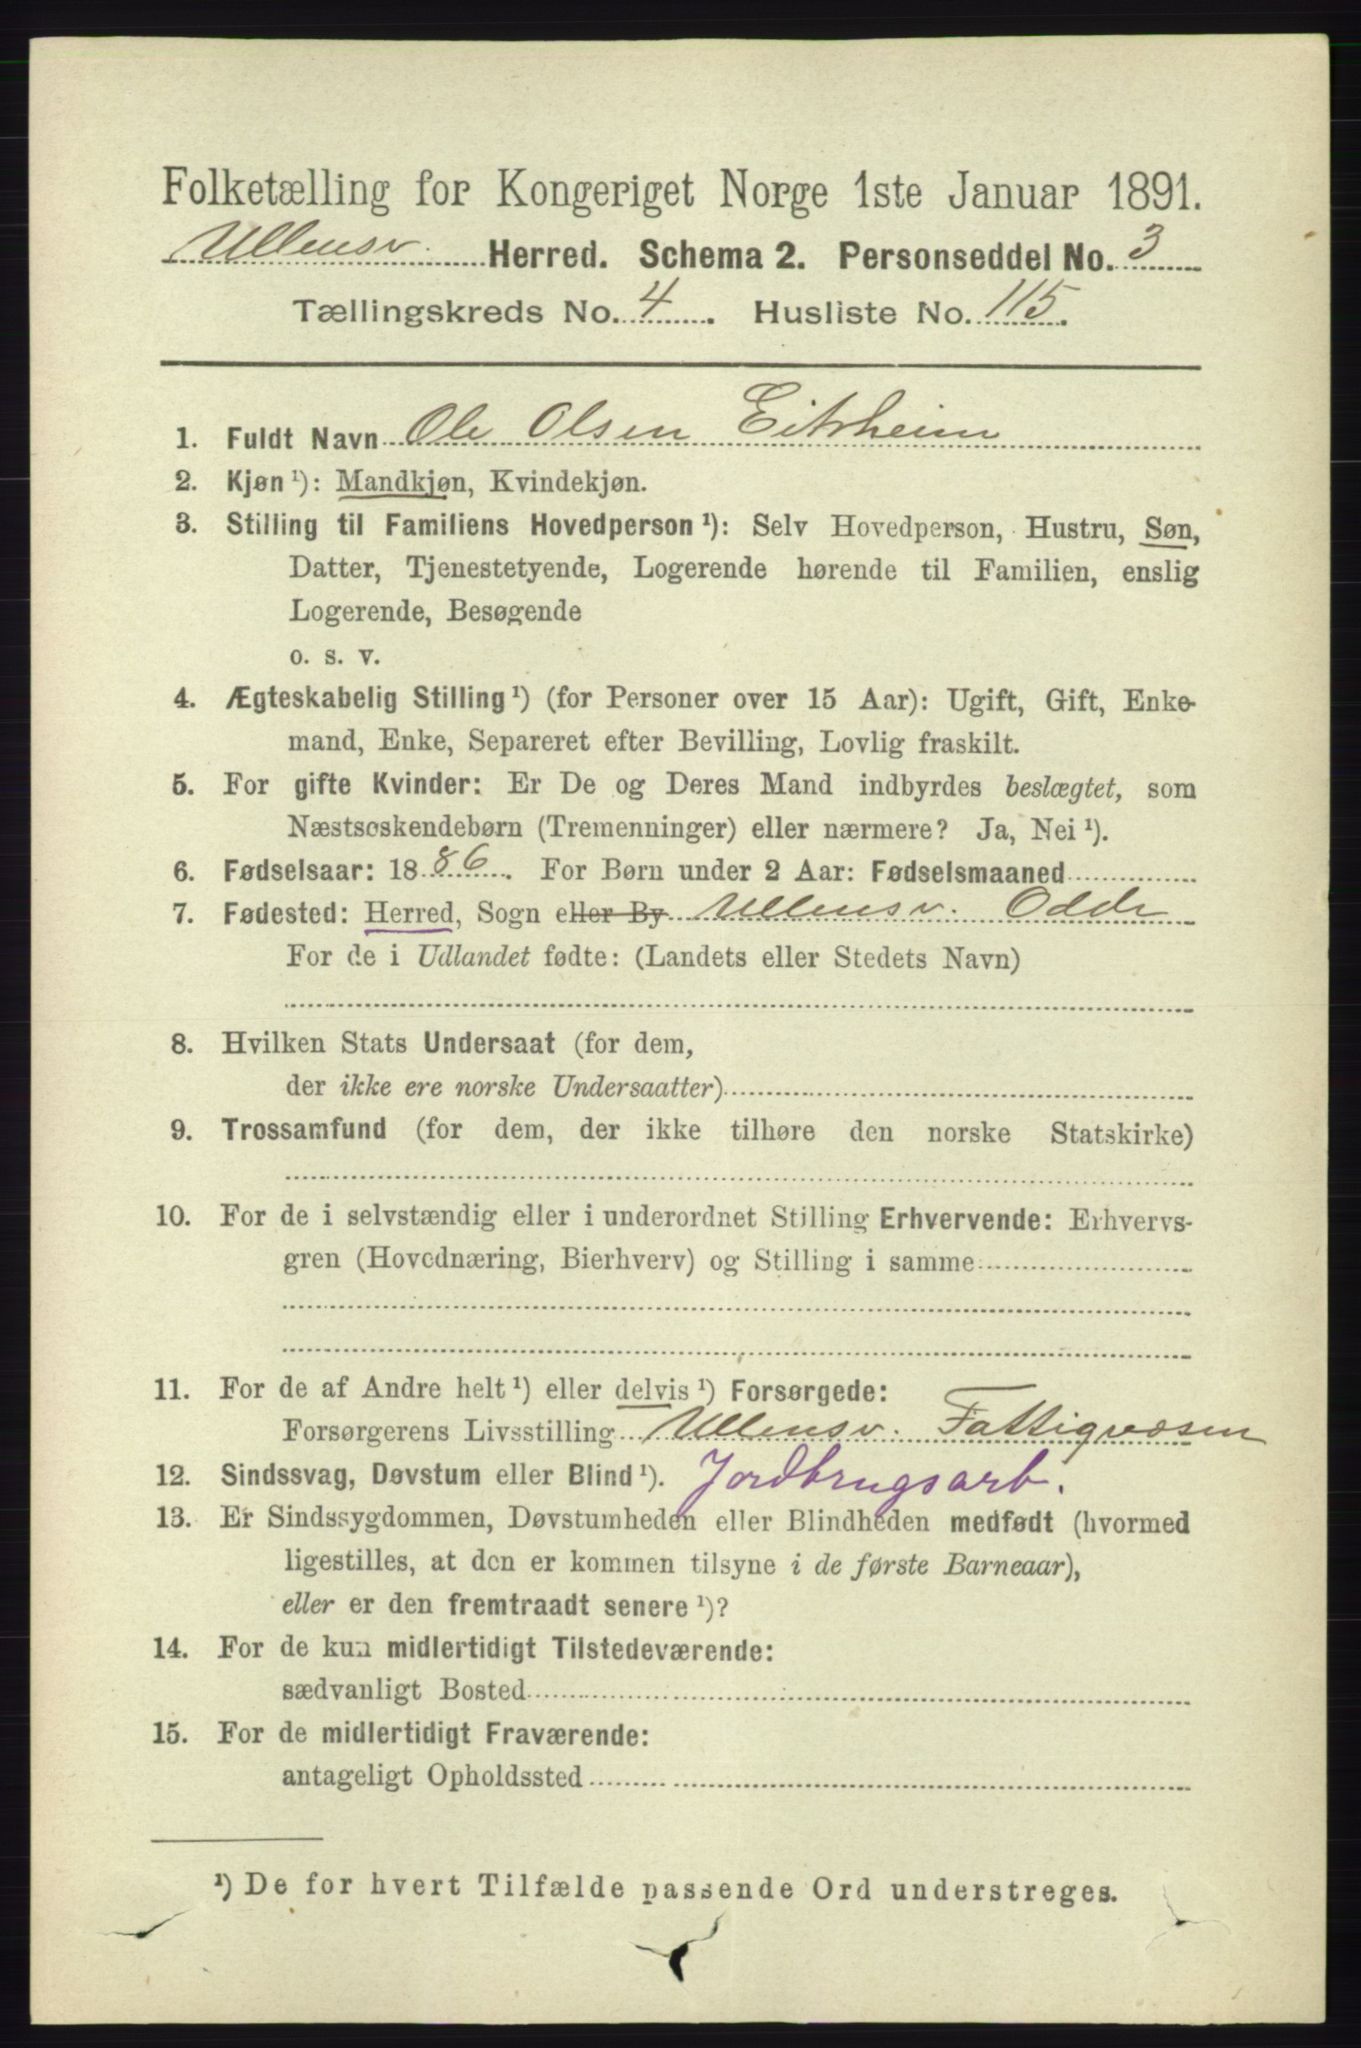 Folketælling for Kongeriget Norge 1ste Januar 1891.
Ullensv. Herred. Schema 2. Personseddel No. 3
Tællingskreds No. 4. Husliste No. 115.
1. Fuldt Navn Ole Olsen Eitrheim
2. Kjøn ¹): Mandkjøn, Kvindekjøn.
3. Stilling til Familiens Hovedperson ¹): Selv Hovedperson, Hustru, Søn,
Datter, Tjenestetyende, Logerende hørende til Familien, enslig
Logerende, Besøgende
o. s. v.
4. Ægteskabelig Stilling ¹) (for Personer over 15 Aar): Ugift, Gift, Enke-
mand, Enke, Separeret efter Bevilling, Lovlig fraskilt.
5. For gifte Kvinder: Er De og Deres Mand indbyrdes beslægtet, som
Næstsøskendebørn (Tremenninger) eller nærmere? Ja, Nei ¹).
6. Fødselsaar: 1886. For Børn under 2 Aar: Fødselsmaaned
7. Fødested: Herred, Sogn eller By Ullensv. Odde
For de i Udlandet fødte: (Landets eller Stedets Navn)
8. Hvilken Stats Undersaat (for dem,
der ikke ere norske Undersaatter)
9. Trossamfund (for dem, der ikke tilhøre den norske Statskirke)
10. For de i selvstændig eller i underordnet Stilling Erhvervende: Erhvervs-
gren (Hovednæring, Bierhverv) og Stilling i samme
11. For de af Andre helt ¹) eller delvis ¹) Forsørgede:
Forsørgerens Livsstilling Ullensv. Fattigvæsen
12. Sindssvag, Døvstum eller Blind ¹). Jordbrugsarb.
13. Er Sindssygdommen, Døvstumheden eller Blindheden medfødt (hvormed
ligestilles, at den er kommen tilsyne i de første Barneaar),
eller er den fremtraadt senere ¹)?
14. For de kun midlertidigt Tilstedeværende:
sædvanligt Bosted
15. For de midlertidigt Fraværende:
antageligt Opholdssted
¹) De for hvert Tilfælde passende Ord understreges.